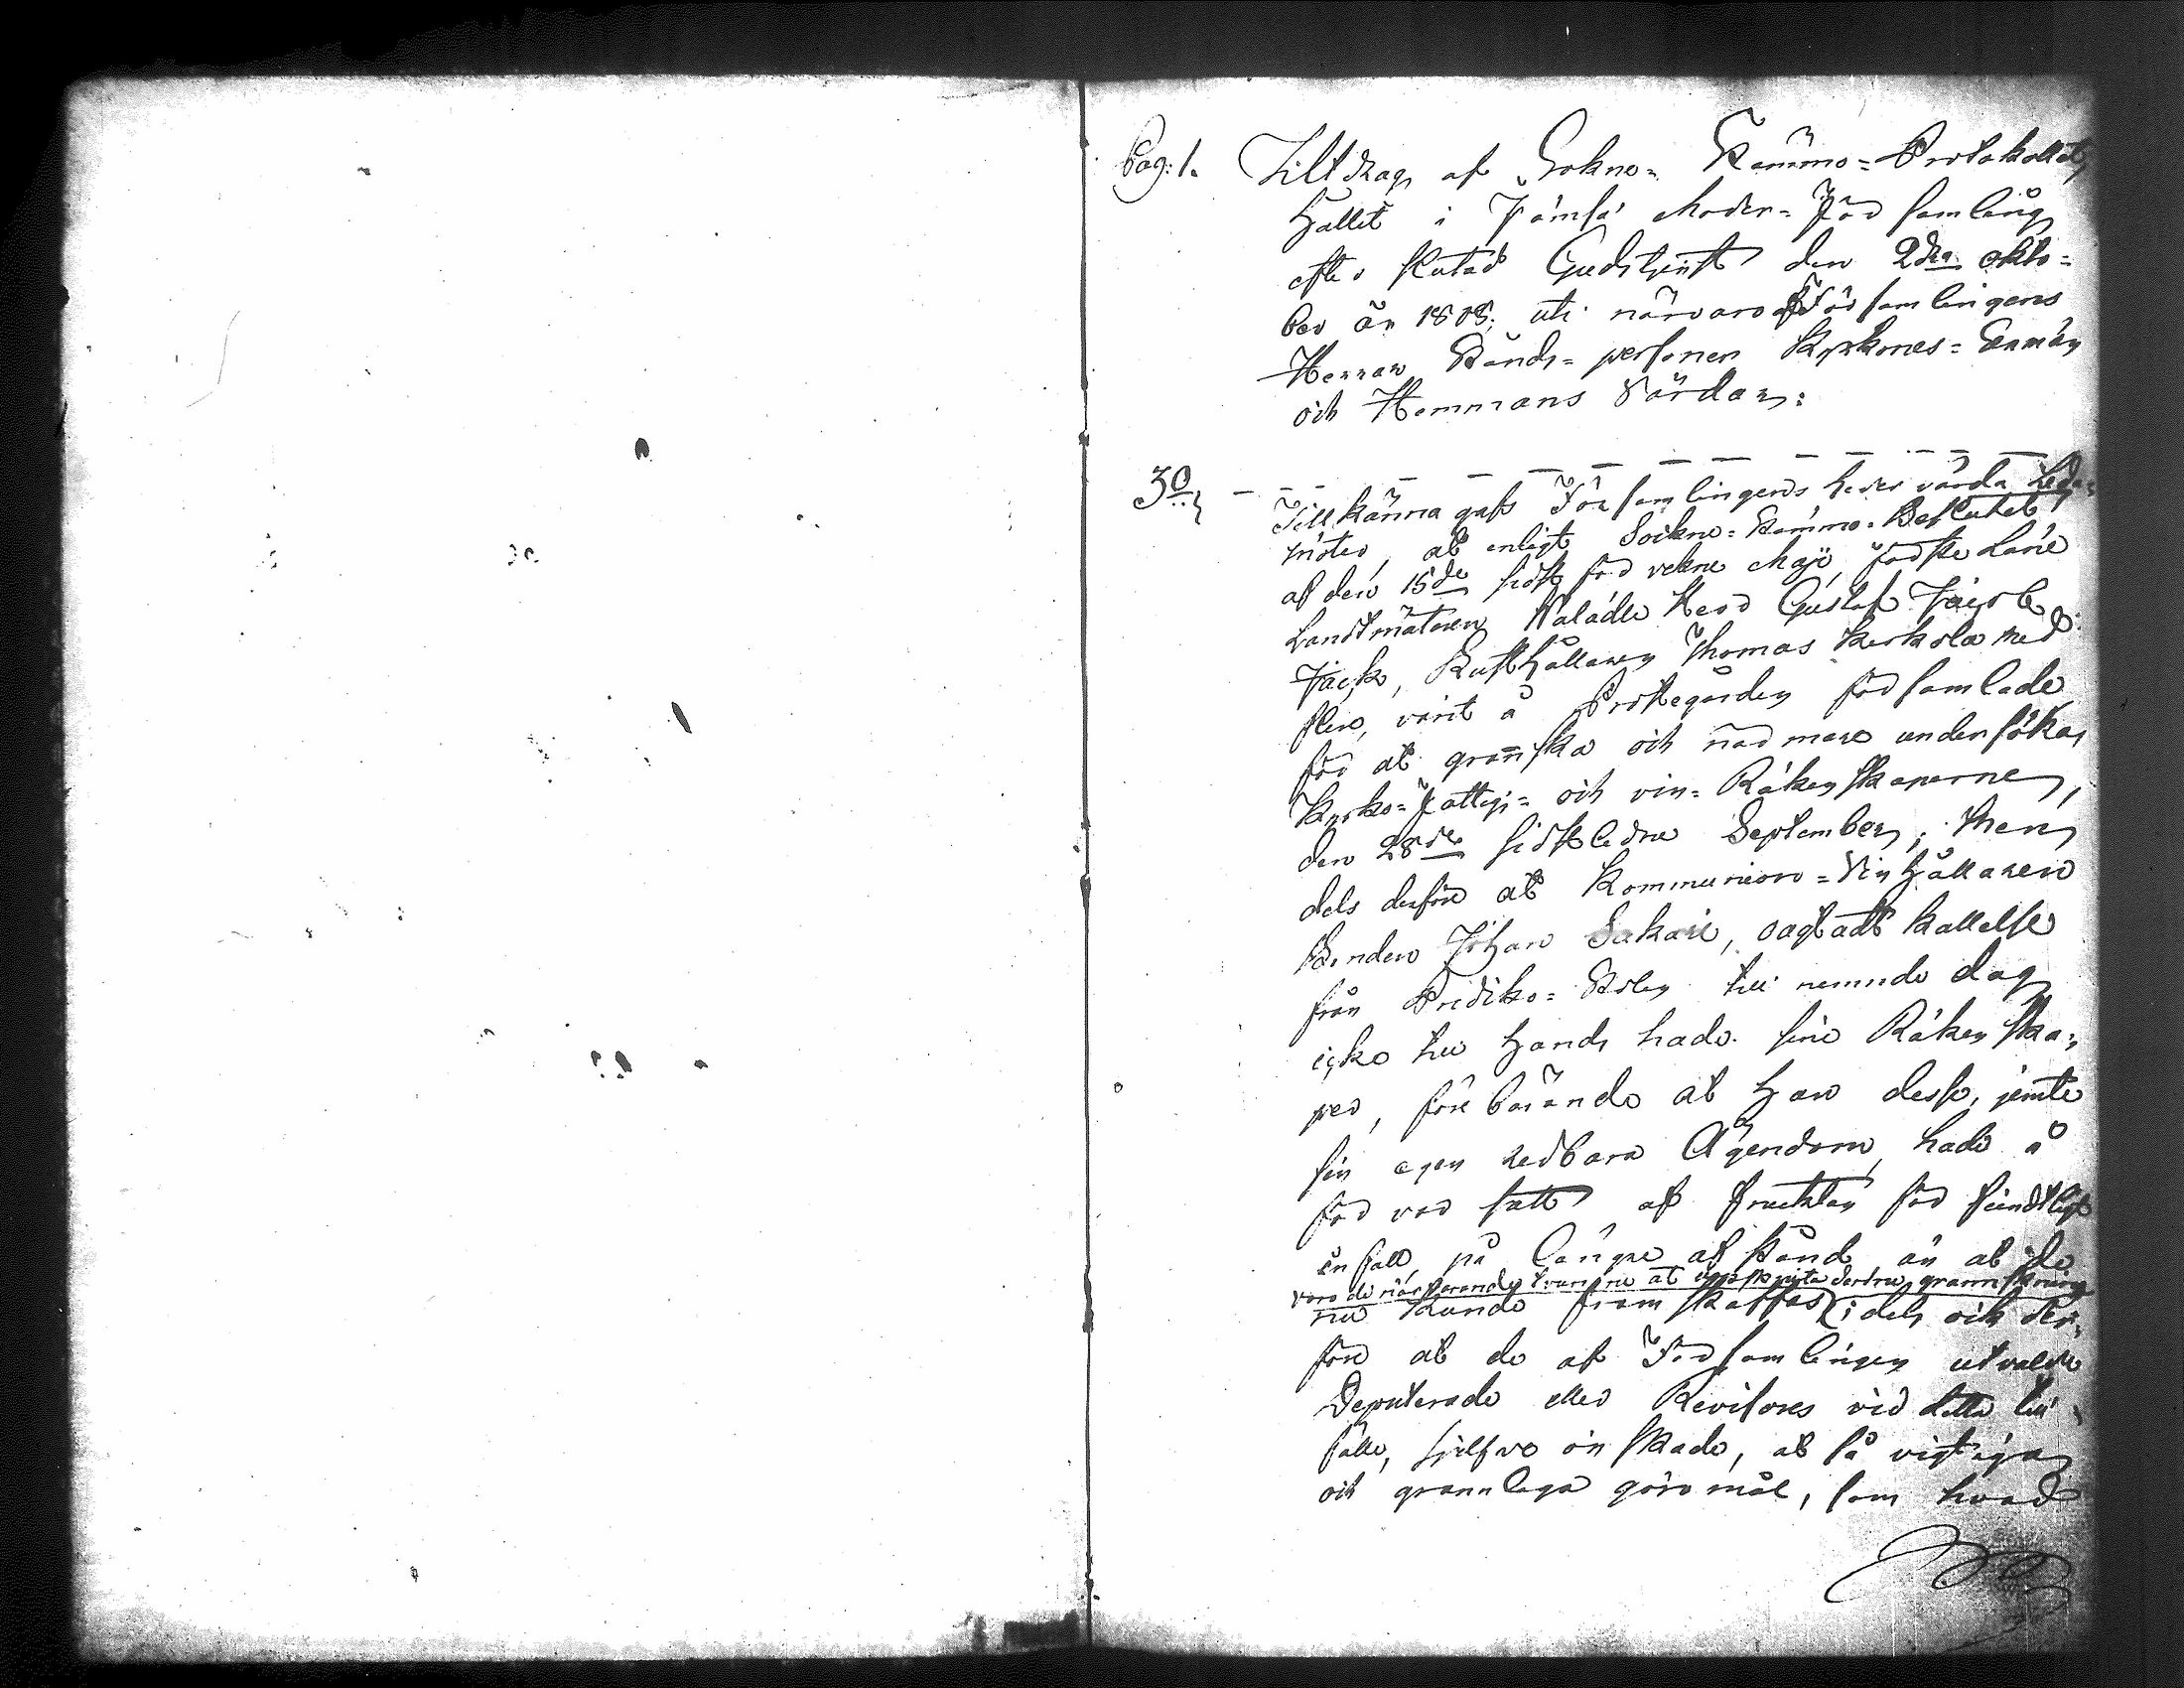 Pag: 1. Utdrag af Sokne-Stämmo-Protokollet,
hållet i Jämsä Moder-Församling
efter slutad Gudstjenst den 2dra Okto=
ber år 1808; uti närvaro af Församlingens
Herrar Stånds-personer Kyrkones-Sexmän
och Hemmans Värdar:
3o, Tillkänna gafs Församlingens hedervärda Leda=
möter, at enligt Sockne-Stämmo-Beslutet
af den 15de sidst förvekne Maji, förste Land
Landtmätaren Wälädle Herr Gustaf
Jack, Rusthållaren Thomas Kerkola med
flere, varit å Prostegården församlade
för at granska och närmare undersöka,
Kyrko-Fattig- och vin-Räkenskaperne,
den 28de sidstledne September; Men,
dels derföre at Kommunion-Vin hållaren
Bonden Johan Sakari, oagtadt kallelse
från Prediko-Stolen till nemnde dag
icke till hands hade sine Räkenska=
per, förebärande at han desse, jemte
sin egen redbara Ägendom, hade å
förvar satt af fruktan för fiendtligt
infall, på längre afstånd än at de
voro de närvarande hvarken at derföre granskning
nu kunde framskaffas; dels och der=
före at de af Församlingen utvalde
Deputerade eller Revisores vid detta till=
fälle, sjelfve önskade, at så vigtiga
och grannlaga göromål, som hvad